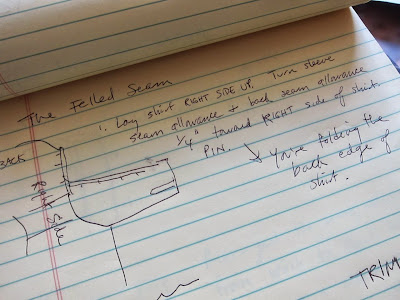 The Felled Seam
1. Lay shirt RIGHT SIDE UP. Turn sleeve
seam allowance & back seam allowance
1/4" toward RIGHT side of shirt.
PIN.
↘ You're folding the
back edge of
shirt.
BACK
RIGHT SIDE
TRIM